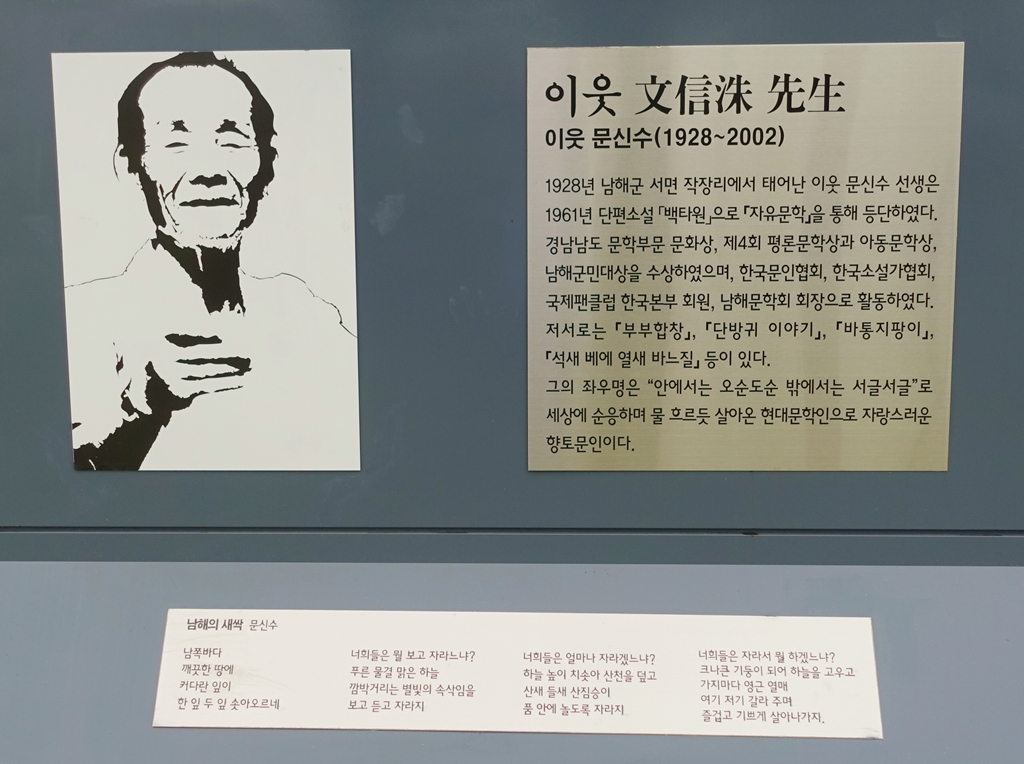 이웃 文信洙 先生
이웃 문신수(1928~2002)
1928년 남해군 서면 작장리에서 태어난 이웃 문신수 선생은
1961년 단편소설 「백타원」으로 『자유문학』을 통해 등단하였다.
경남남도 문학부문 문화상, 제4회 평론문학상과 아동문학상,
남해군민대상을 수상하였으며, 한국문인협회, 한국소설가협회,
국제팬클럽 한국본부 회원, 남해문학회 회장으로 활동하였다.
저서로는 『부부합창』, 『단방귀 이야기』, 『바통지팡이』,
『석새 베에 열새 바느질』 등이 있다.
그의 좌우명은 “안에서는 오순도순 밖에서는 서글서글”로
세상에 순응하며 물 흐르듯 살아온 현대문학인으로 자랑스러운
향토문인이다.
남해의 새싹 문신수
남쪽바다
깨끗한 땅에
커다란 잎이
한 잎 두 잎 솟아오르네
너희들은 뭘 보고 자라느냐?
푸른 물결 맑은 하늘
깜박거리는 별빛의 속삭임을
보고 듣고 자라지
너희들은 얼마나 자라겠느냐?
하늘 높이 치솟아 산천을 덮고
산새 들새 산짐승이
품 안에 놀도록 자라지
너희들은 자라서 뭘 하겠느냐?
크나큰 기둥이 되어 하늘을 고우고
가지마다 영근 열매
여기 저기 갈라 주며
즐겁고 기쁘게 살아나가지.